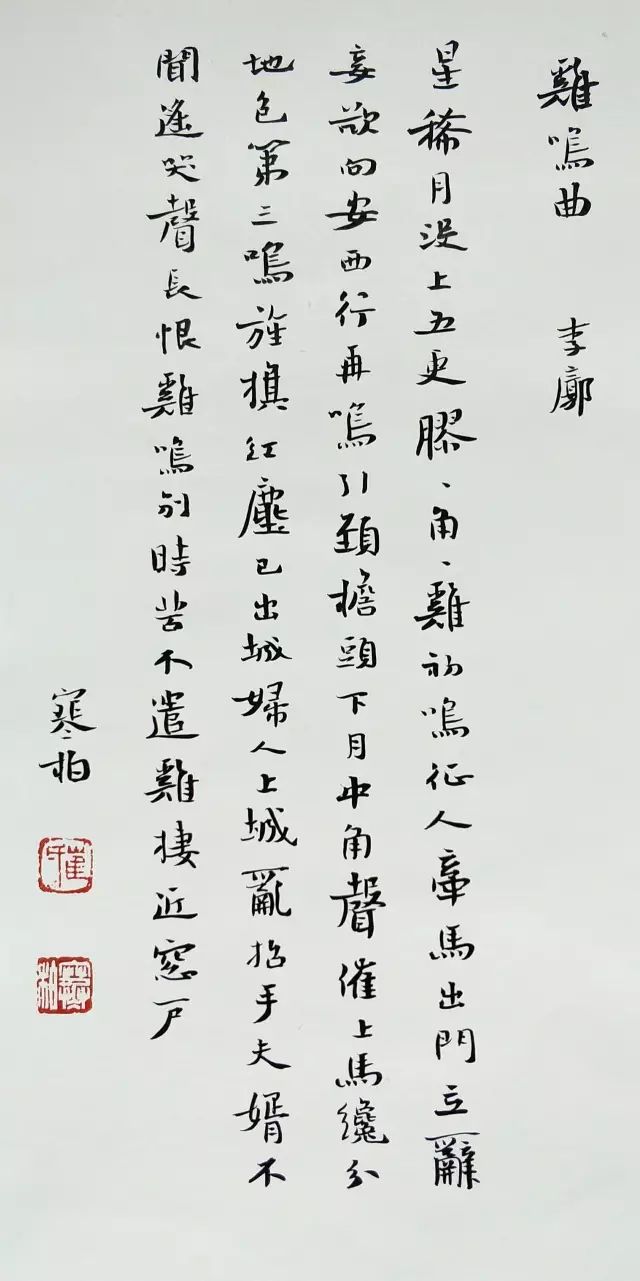 雞鳴曲 李廓
星稀月没上五更膠、角、雞初鳴征人牽馬出門立辭
妾欲向安西行再鳴引頸檐頭下月中角聲催上馬纔分
地色第三鳴旌旗紅塵已出城婦人上城亂招手夫婿不
聞遥哭聲長恨雞鳴别時苦不遣雞棲近窓户
寒柏
崔
寒柏